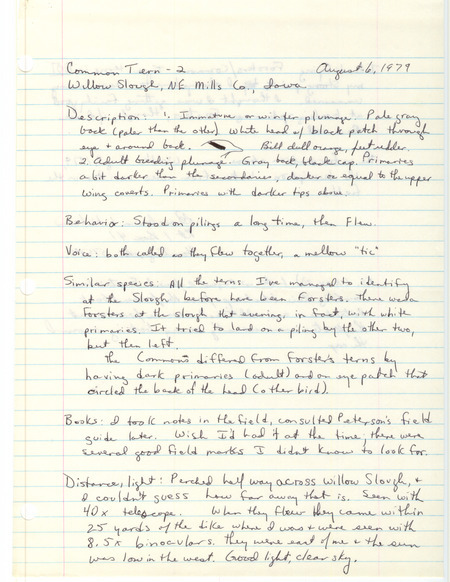 Common Tern - 2 August 6, 1979
Willow Slough, NE Mills Co., Iowa
Description: 1. Immature or winter plumage. Pale gray
back (paler than the other) white head w/ black patch through
eye + around back. Bill dull orange, feet redder.
2. Adult breeding plumage. Gray back, black cap. Primaries
a bit darker than the secondaries, darker or equal to the upper
wing coverts. Primaries with darker tips above.
Behavior: Stood on pilings a long time, then flew.
Voice: both called as they flew together, a mellow "tic"
Similar species: All the terns I've managed to identify
at the Slough before have been Forsters. There was a
Forsters at the slough that evening, in fact, with white
primaries. It tried to land on a piling by the other two,
but then left.
The Commons differed from Forster's terns by
having dark primaries (adult) and an eye patch that
circled the back of the head (other bird).
Books: I took notes in the field, consulted Peterson's field
guide later. Wish I'd had it at the time, there were
several good field marks I didn't know to look for.
Distance, light: Perched half way across Willow Slough, +
I couldn't guess how far away that is. Seen with
40x telescope. When they flew they came within
25 yards of the dike where I was + were seen with
8.5x binoculars. They were east of me + the sun
was low in the west. Good light, clear sky.